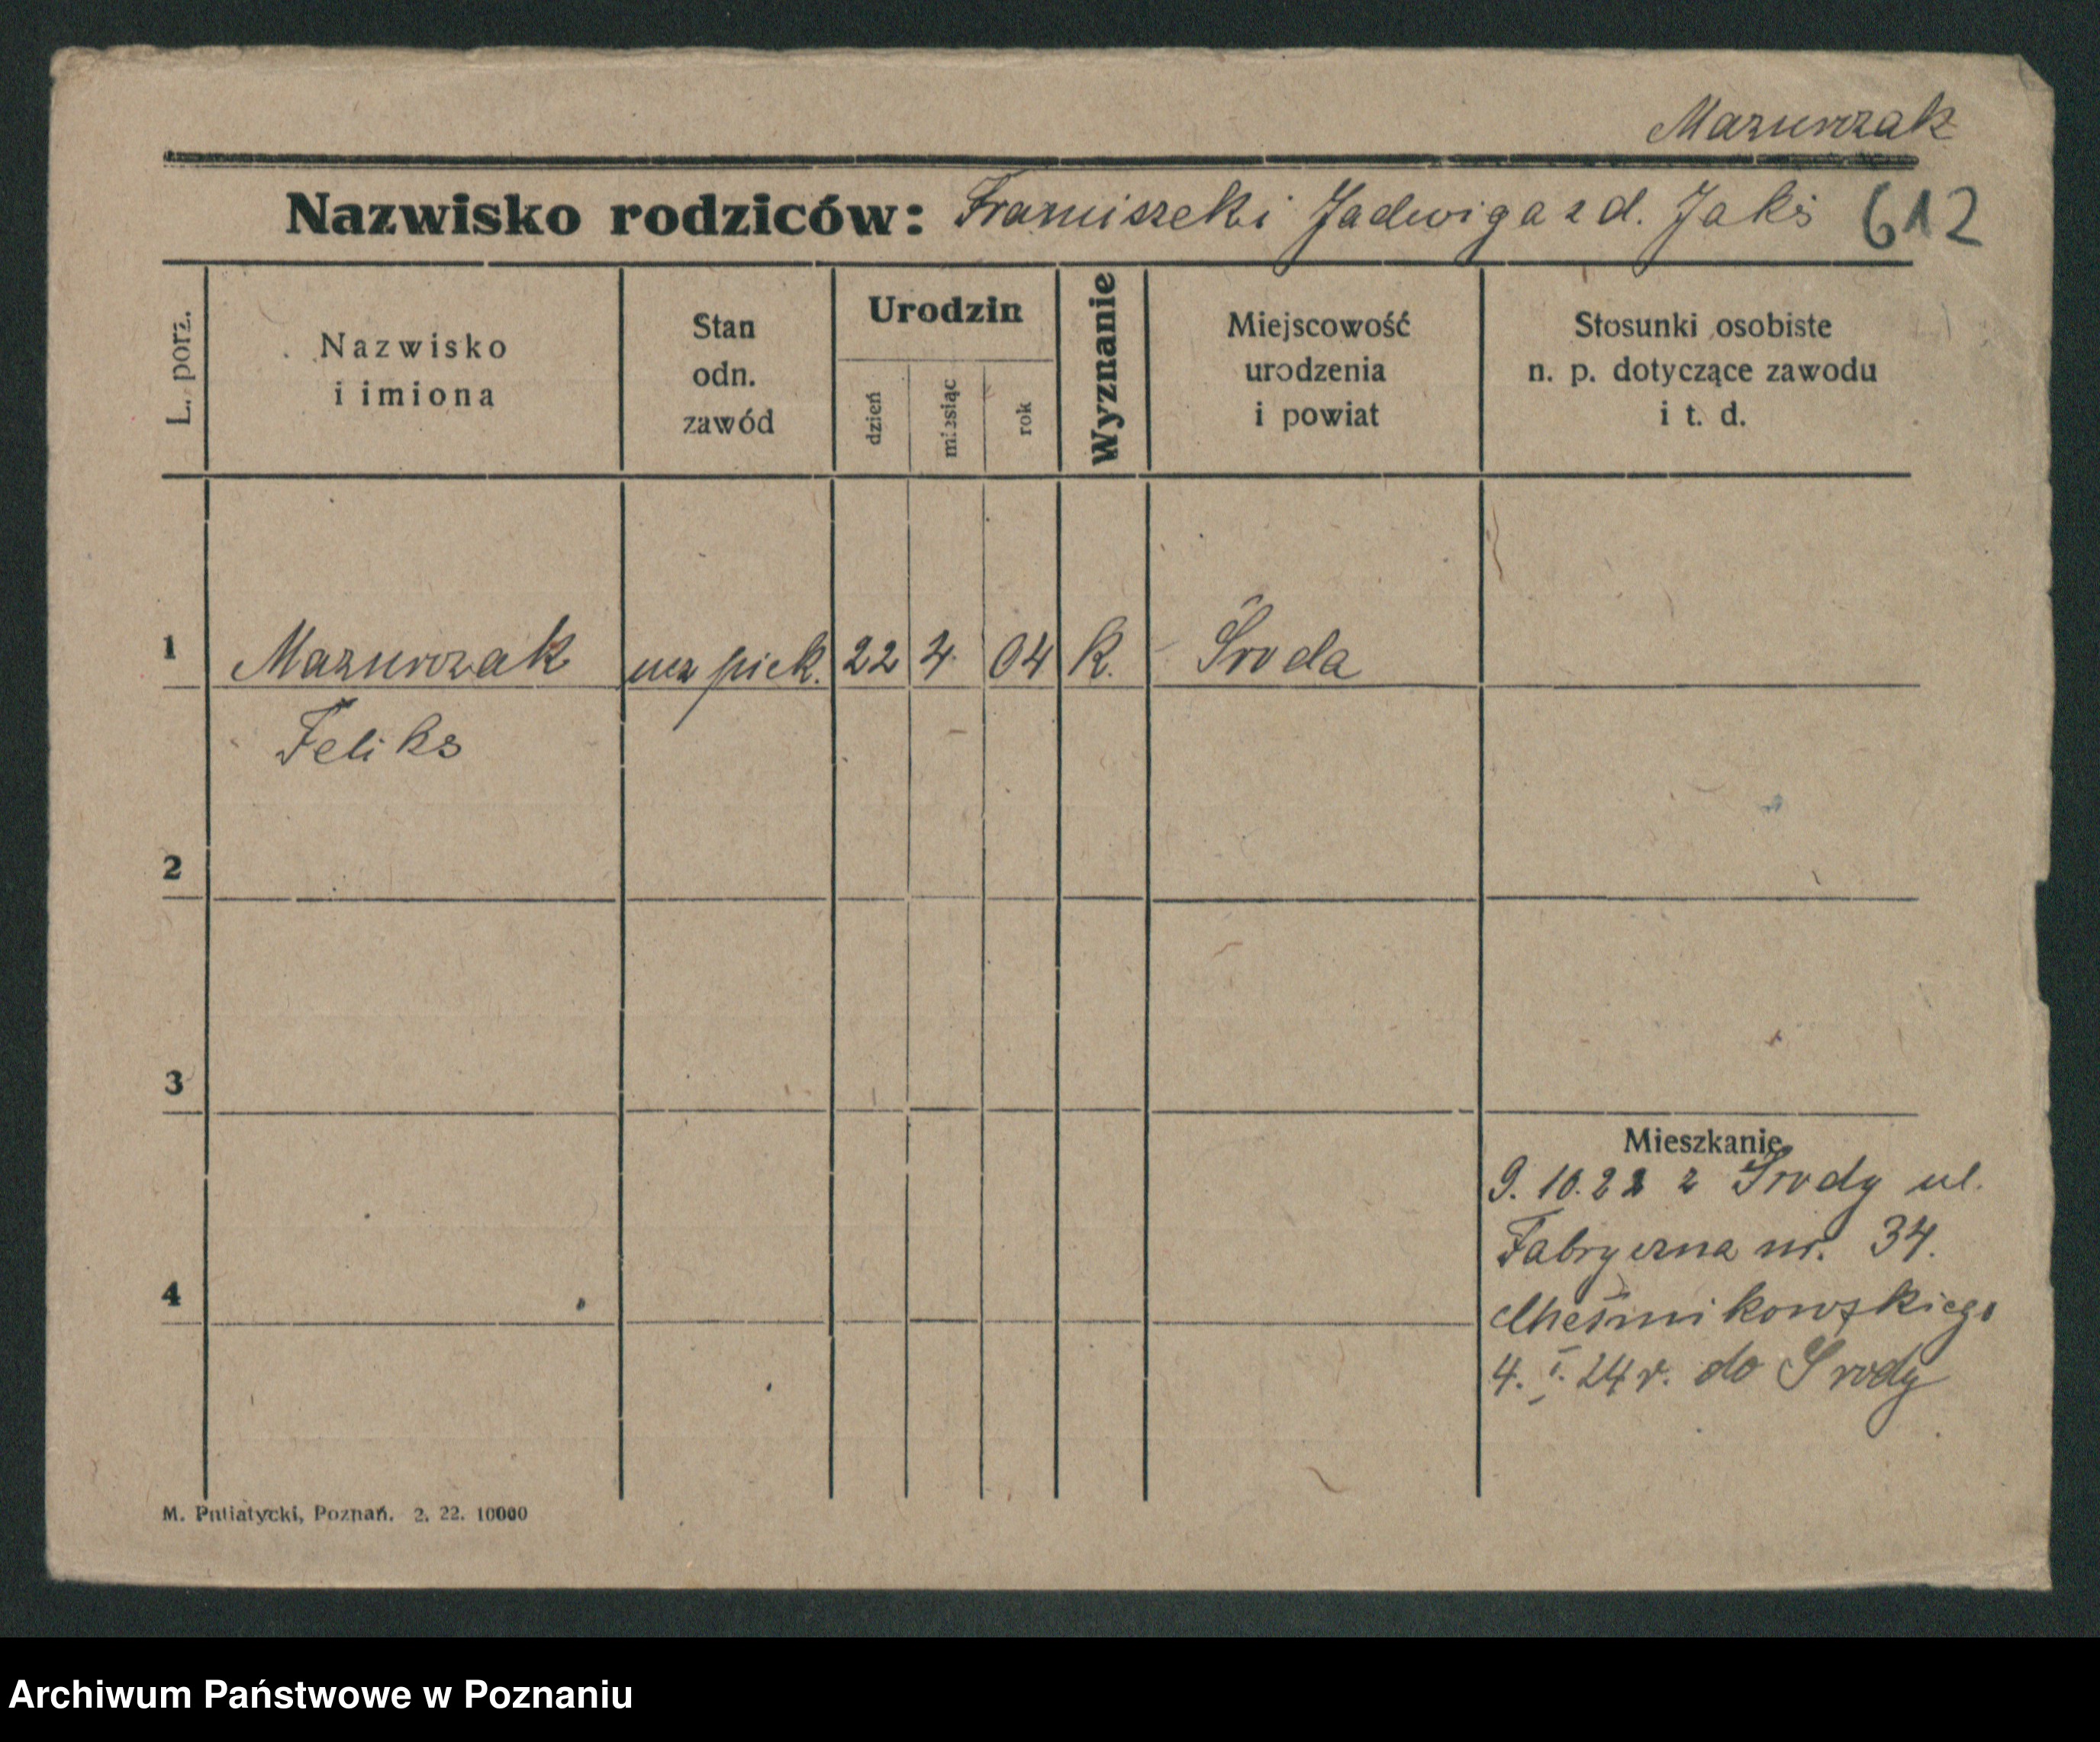 Mazurczak
Nazwisko rodziców: Franciszek i Jadwiga z d. Jakś 612
L. porz.
Nazwisko
i imiona
Stan
odn.
zawód
Urodzin
dzień
miesiąc
rok
Wyznanie
Miejscowość
urodzenia
i powiat
Stosunki osobiste
n. p. dotyczące zawodu
i t. d.
1 Mazurczak ucz piek. 22 4. 04 k. Środa
Feliks
2
3
4
Mieszkanie
9. 10. 22 z Środy ul.
Fabryczna nr. 34.
4. I. 24 r. do Środy
M. Putiatycki, Poznań. 2. 22. 10000
Archiwum Państwowe w Poznaniu